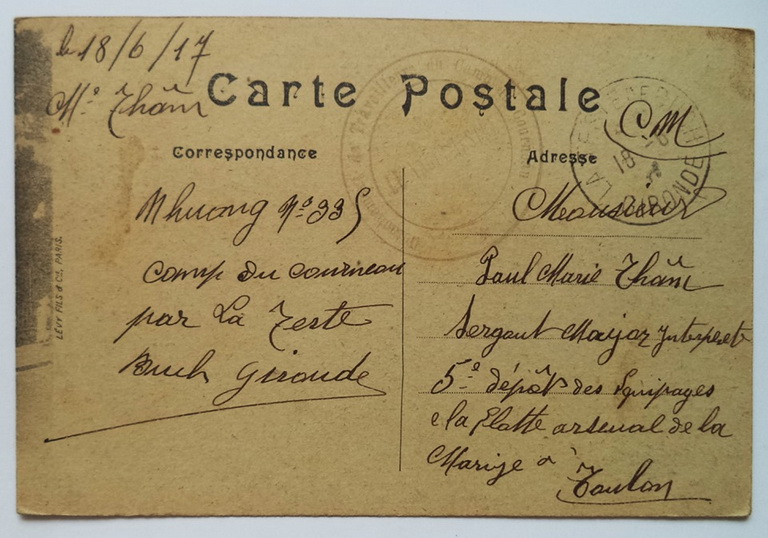 le 18/6/17
Mr Thâm
Carte Postale
CM
Correspondance
Adresse
LA TESTE DE BUCH
18 -6
GIRONDE
Nhuong No 335
Camp du Courneau
par La Teste
Buch Gironde
Monsieur
Paul Marie Thâm
Sergent Major Interprete
5e dépôts des Equipages
de la Flotte arsenal de la
Marine à
Toulon
LÉVY FILS & Cie, PARIS.